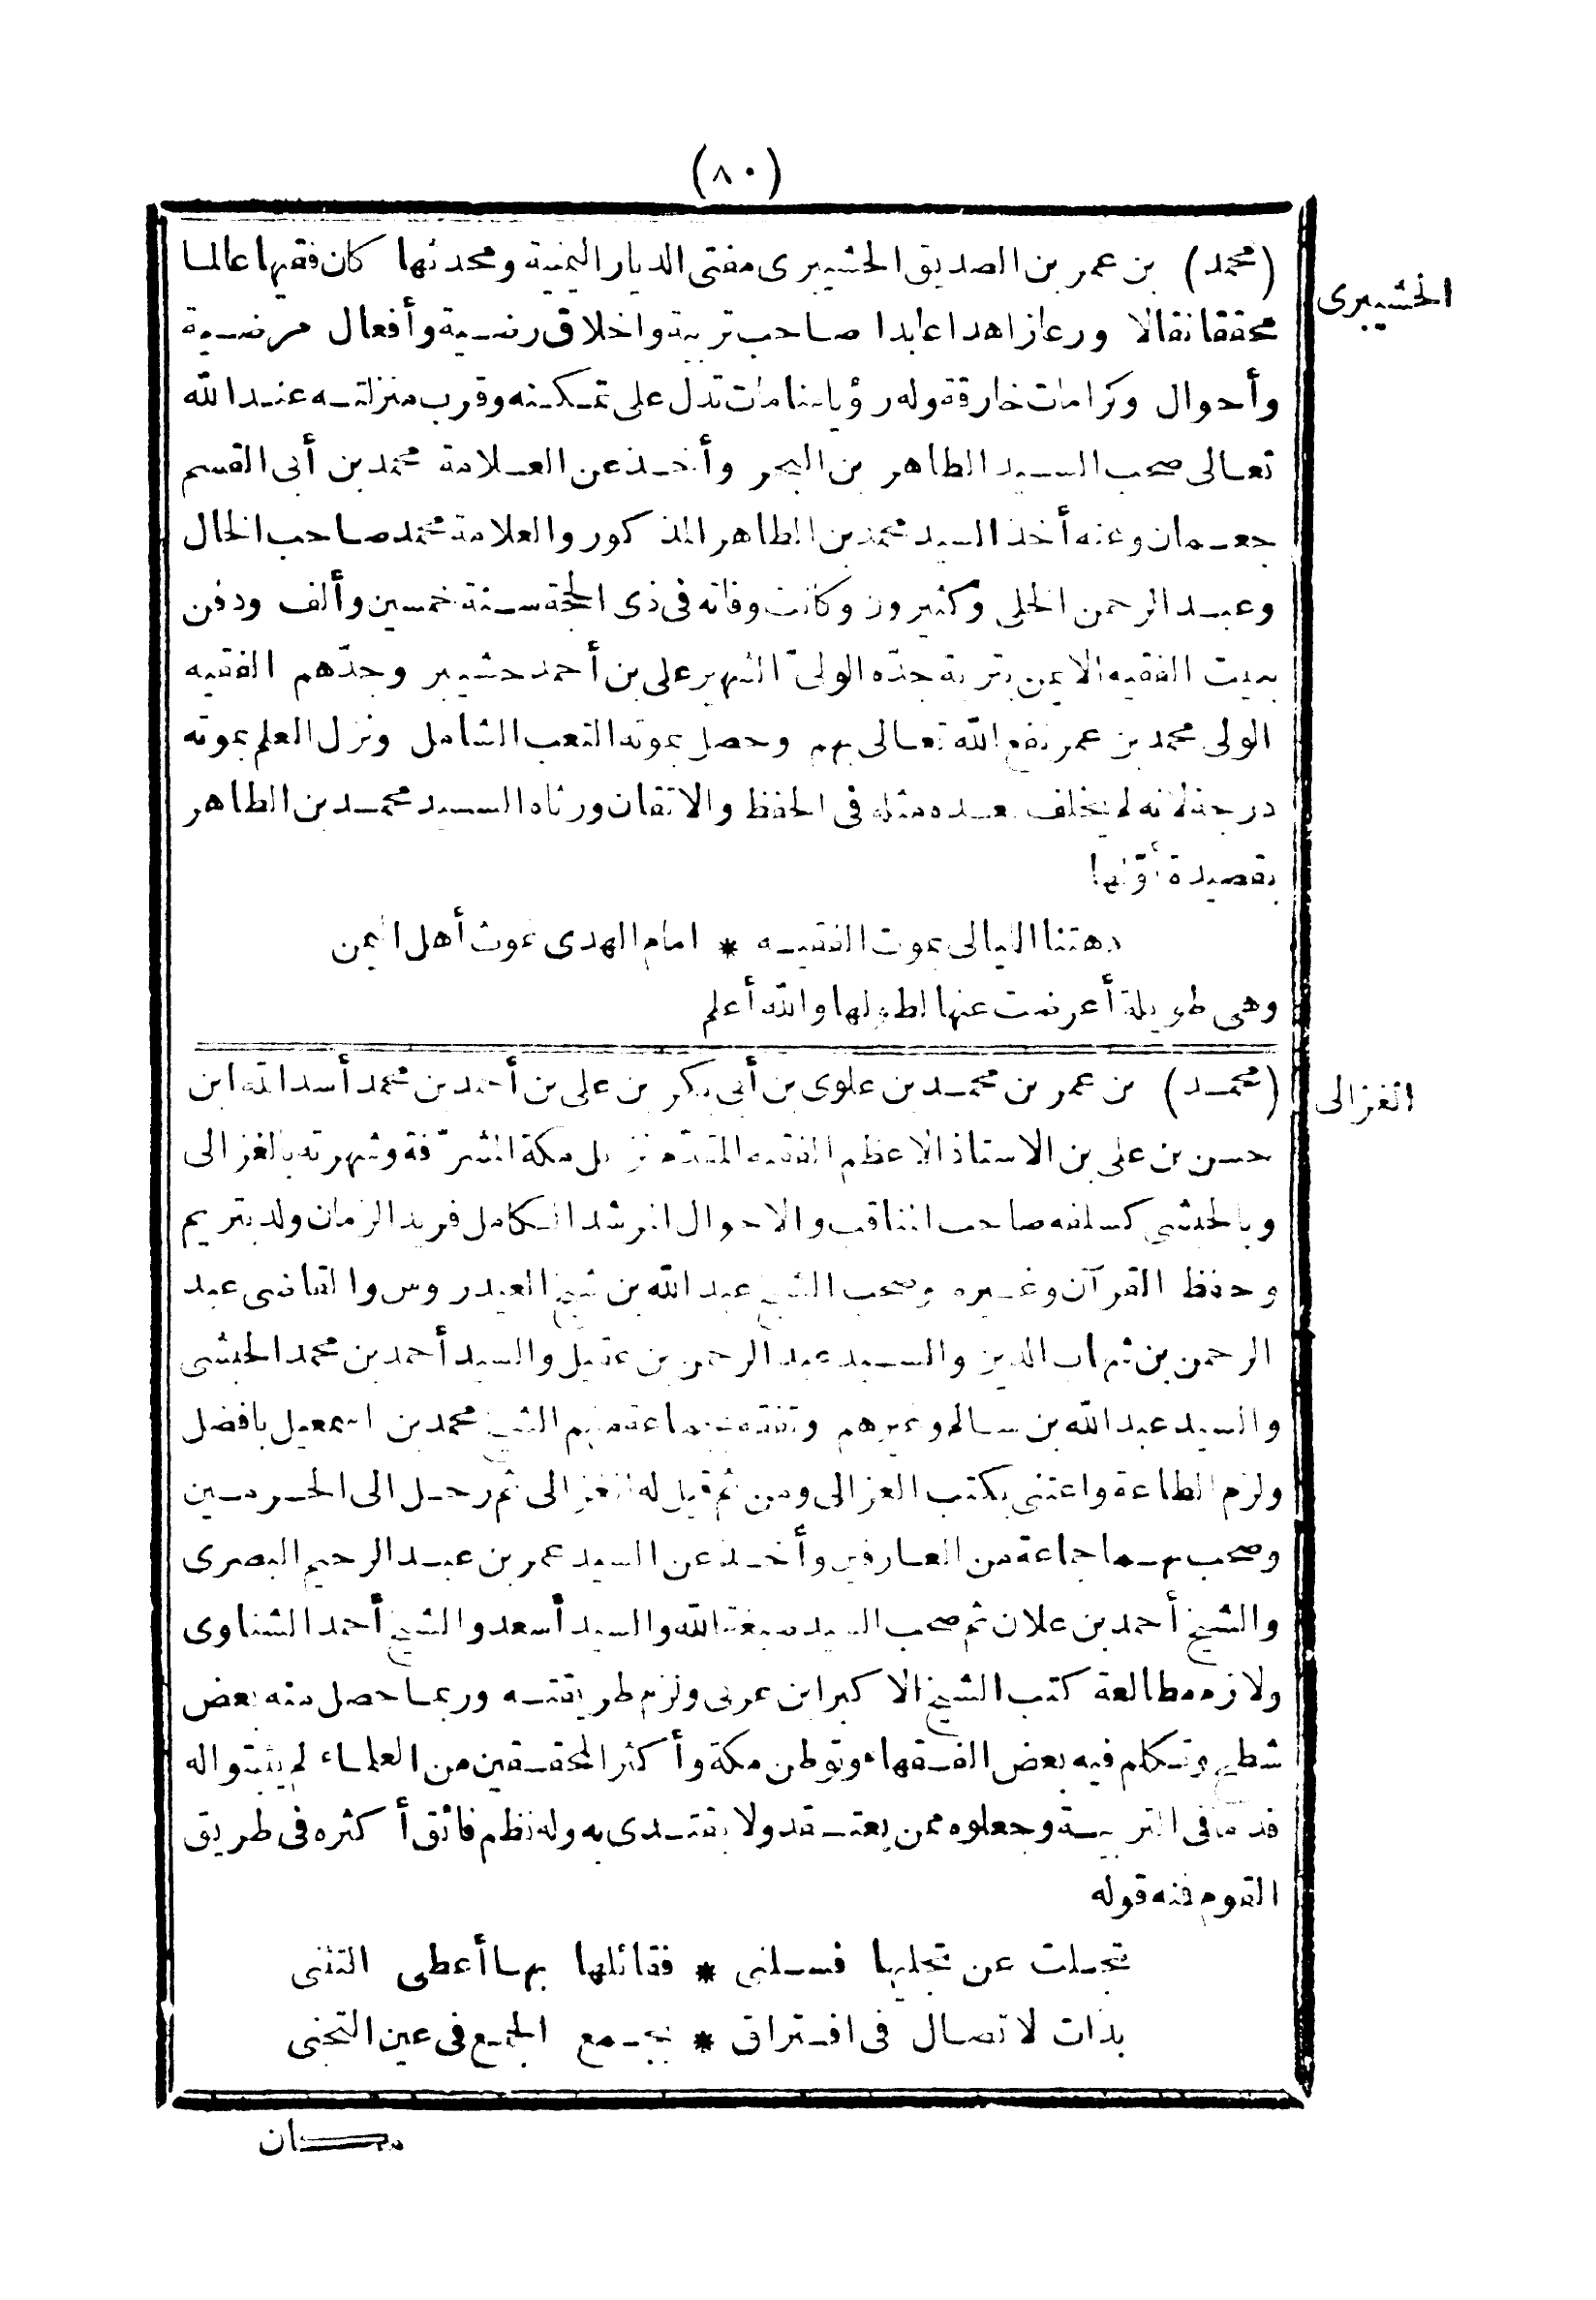 (٨٠)
(محمد) بن عمر بن الصديق الحشيبرى مفتى الديار اليمنية ومحدثها كان فقيها عالما
الحشيبرى
محققا نقالا ورعا زاهدا عابدا صاحب تربية واخلاق رضية وأفعال مرضية
وأحوال وكرامات خارقة وله رؤيا منامات تدل على تمكنه وقرب منزلته عند الله
تعالى صحب السيد الطاهر بن البحر وأخذ عن العلامة محمد بن أبى القسم
جعمان وعنه أخذ السيد محمد بن الطاهر المذكور والعلامة محمد صاحب الخال
وعبد الرحمن الخلى وكثيرون وكانت وفاته فى ذى الحجة سنة خمسين وألف ودفن
ببيت الفقيه الايمن بتربة جدّه الولىّ الشهير على بن أحمد حشيبر وجدّهم الفقيه
الولى محمد بن عمر نفع الله تعالى بهم وحصل بموته التعب الشامل ونزل العلم بموته
درجة لانه لم يخلف بعده مثله فى الحفظ والاتقان ورثاه السيد محمد بن الطاهر
بقصيدة أوّلها
دهتنا الليالى بموت الفقيه * امام الهدى غوث أهل اليمن
وهى طويلة أعرضت عنها لطولها والله أعلم
(محمد) بن عمر بن محمد بن علوى بن أبى بكر بن على بن أحمد بن محمد أسد الله ابن
الغزالى
حسن بن على بن الاستاذ الاعظم الفقيه المقدّم نزيل مكة المشرّفة وشهرته بالغزالى
وبالحبشى كسلفه صاحب المناقب والاحوال المرشد الكامل فريد الزمان ولد بتريم
وحفظ القرآن وغيره وصحب الشيخ عبد الله بن شيخ العيدروس والقاضى عبد
الرحمن بن شهاب الدين والسيد عبد الرحمن بن عقيل والسيد أحمد بن محمد الحبشى
والسيد عبد الله بن سالم وغيرهم وتفقه بجماعة منهم الشيخ محمد بن اسمعيل بافضل
ولزم الطاعة واعتنى بكتب الغزالى ومن ثم قيل له الغزالى ثم رحل الى الحرمين
وصحب بهما جماعة من العارفين وأخذ عن السيد عمر بن عبد الرحيم البصرى
والشيخ أحمد بن علان ثم صحب السيد صبغة الله والسيد أسعد والشيخ أحمد الشناوى
ولازم مطالعة كتب الشيخ الاكبر ابن عربى ولزم طريقته وربما حصل منه بعض
شطح وتكلم فيه بعض الفقهاء وتوطن مكة وأكثر المحققين من العلماء لم يثبتوا له
قدما فى التربية وجعلوه ممن يعتقد ولا يقتدى به وله نظم فائق أكثره فى طريق
القوم فنه قوله
تجلت عن تجليها فسلنى * فقائلها بها أعطى التثنى
بذات لاتصال فى افتراق * بجمع الجمع فى عين التجنى